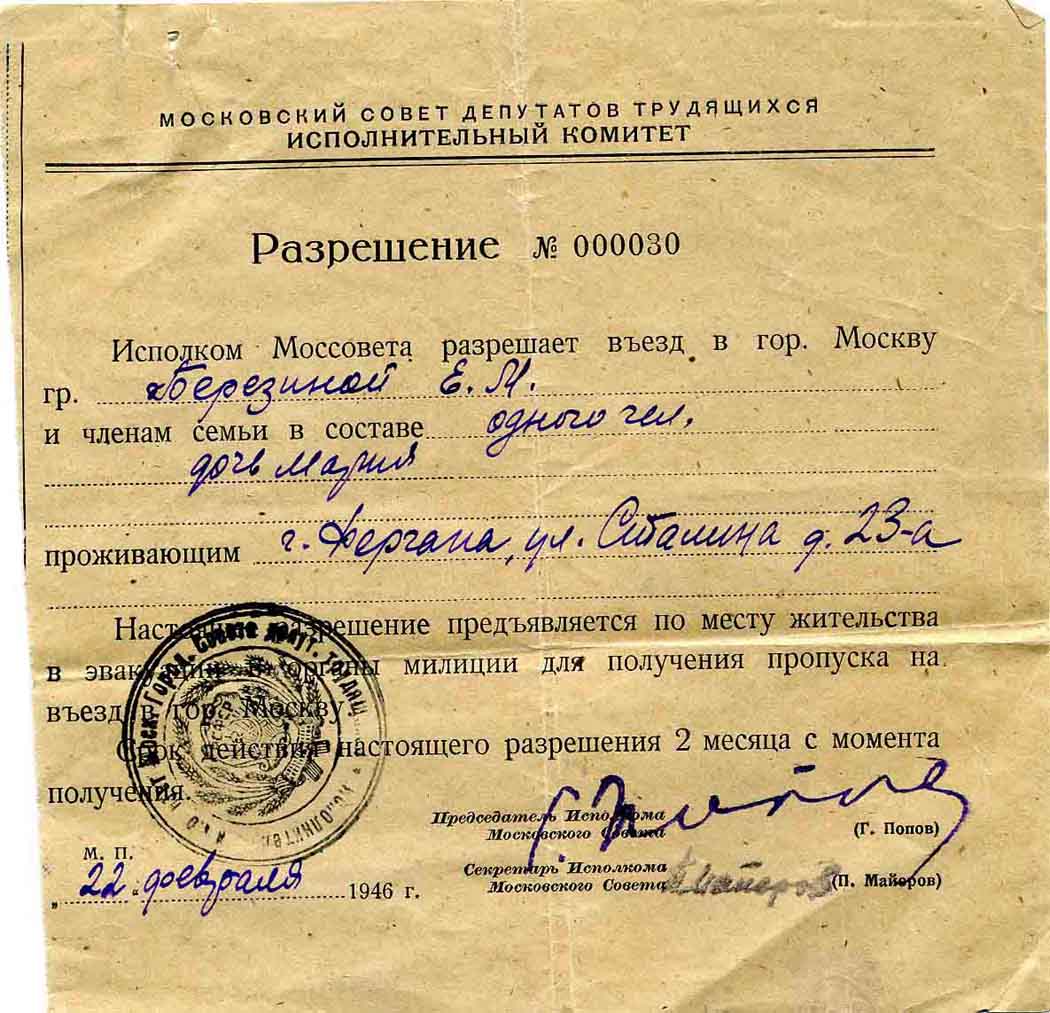 МОСКОВСКИЙ СОВЕТ ДЕПУТАТОВ ТРУДЯЩИХСЯ
ИСПОЛНИТЕЛЬНЫЙ КОМИТЕТ
Разрешение № 000030
Исполком Моссовета разрешает въезд в гор. Москву
гр. Березиной Е. М.
и членам семьи в составе одного чел.
дочь Мария
проживающим г. Фергана, ул. Сталина д. 23-а
Настоящее разрешение предъявляется по месту жительства
в эвакуации в органы милиции для получения пропуска на
въезд в гор. Москву.
Срок действия настоящего разрешения 2 месяца с момента
получения.
Председатель Исполкома
Московского Совета
(Г. Попов)
Секретарь Исполкома
Московского Совета
П. Майоров
(П. Майоров)
М. П.
„22" февраля 1946 г.